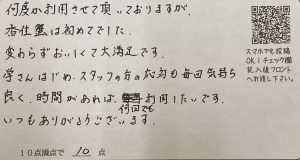 何度か利用させて頂いておりますが、
杏仕盤は初めてでした。
変わらずおいしくて大満足です。
学さんはじめ、スタッフの方の応対も毎回気持ち
良く、時間があれば何回でも利用したいです。
いつもありがとうございます。
10点満点で 10 点
スマホでも投稿
OK!チェック欄
記入後フロント
へお渡し下さい。